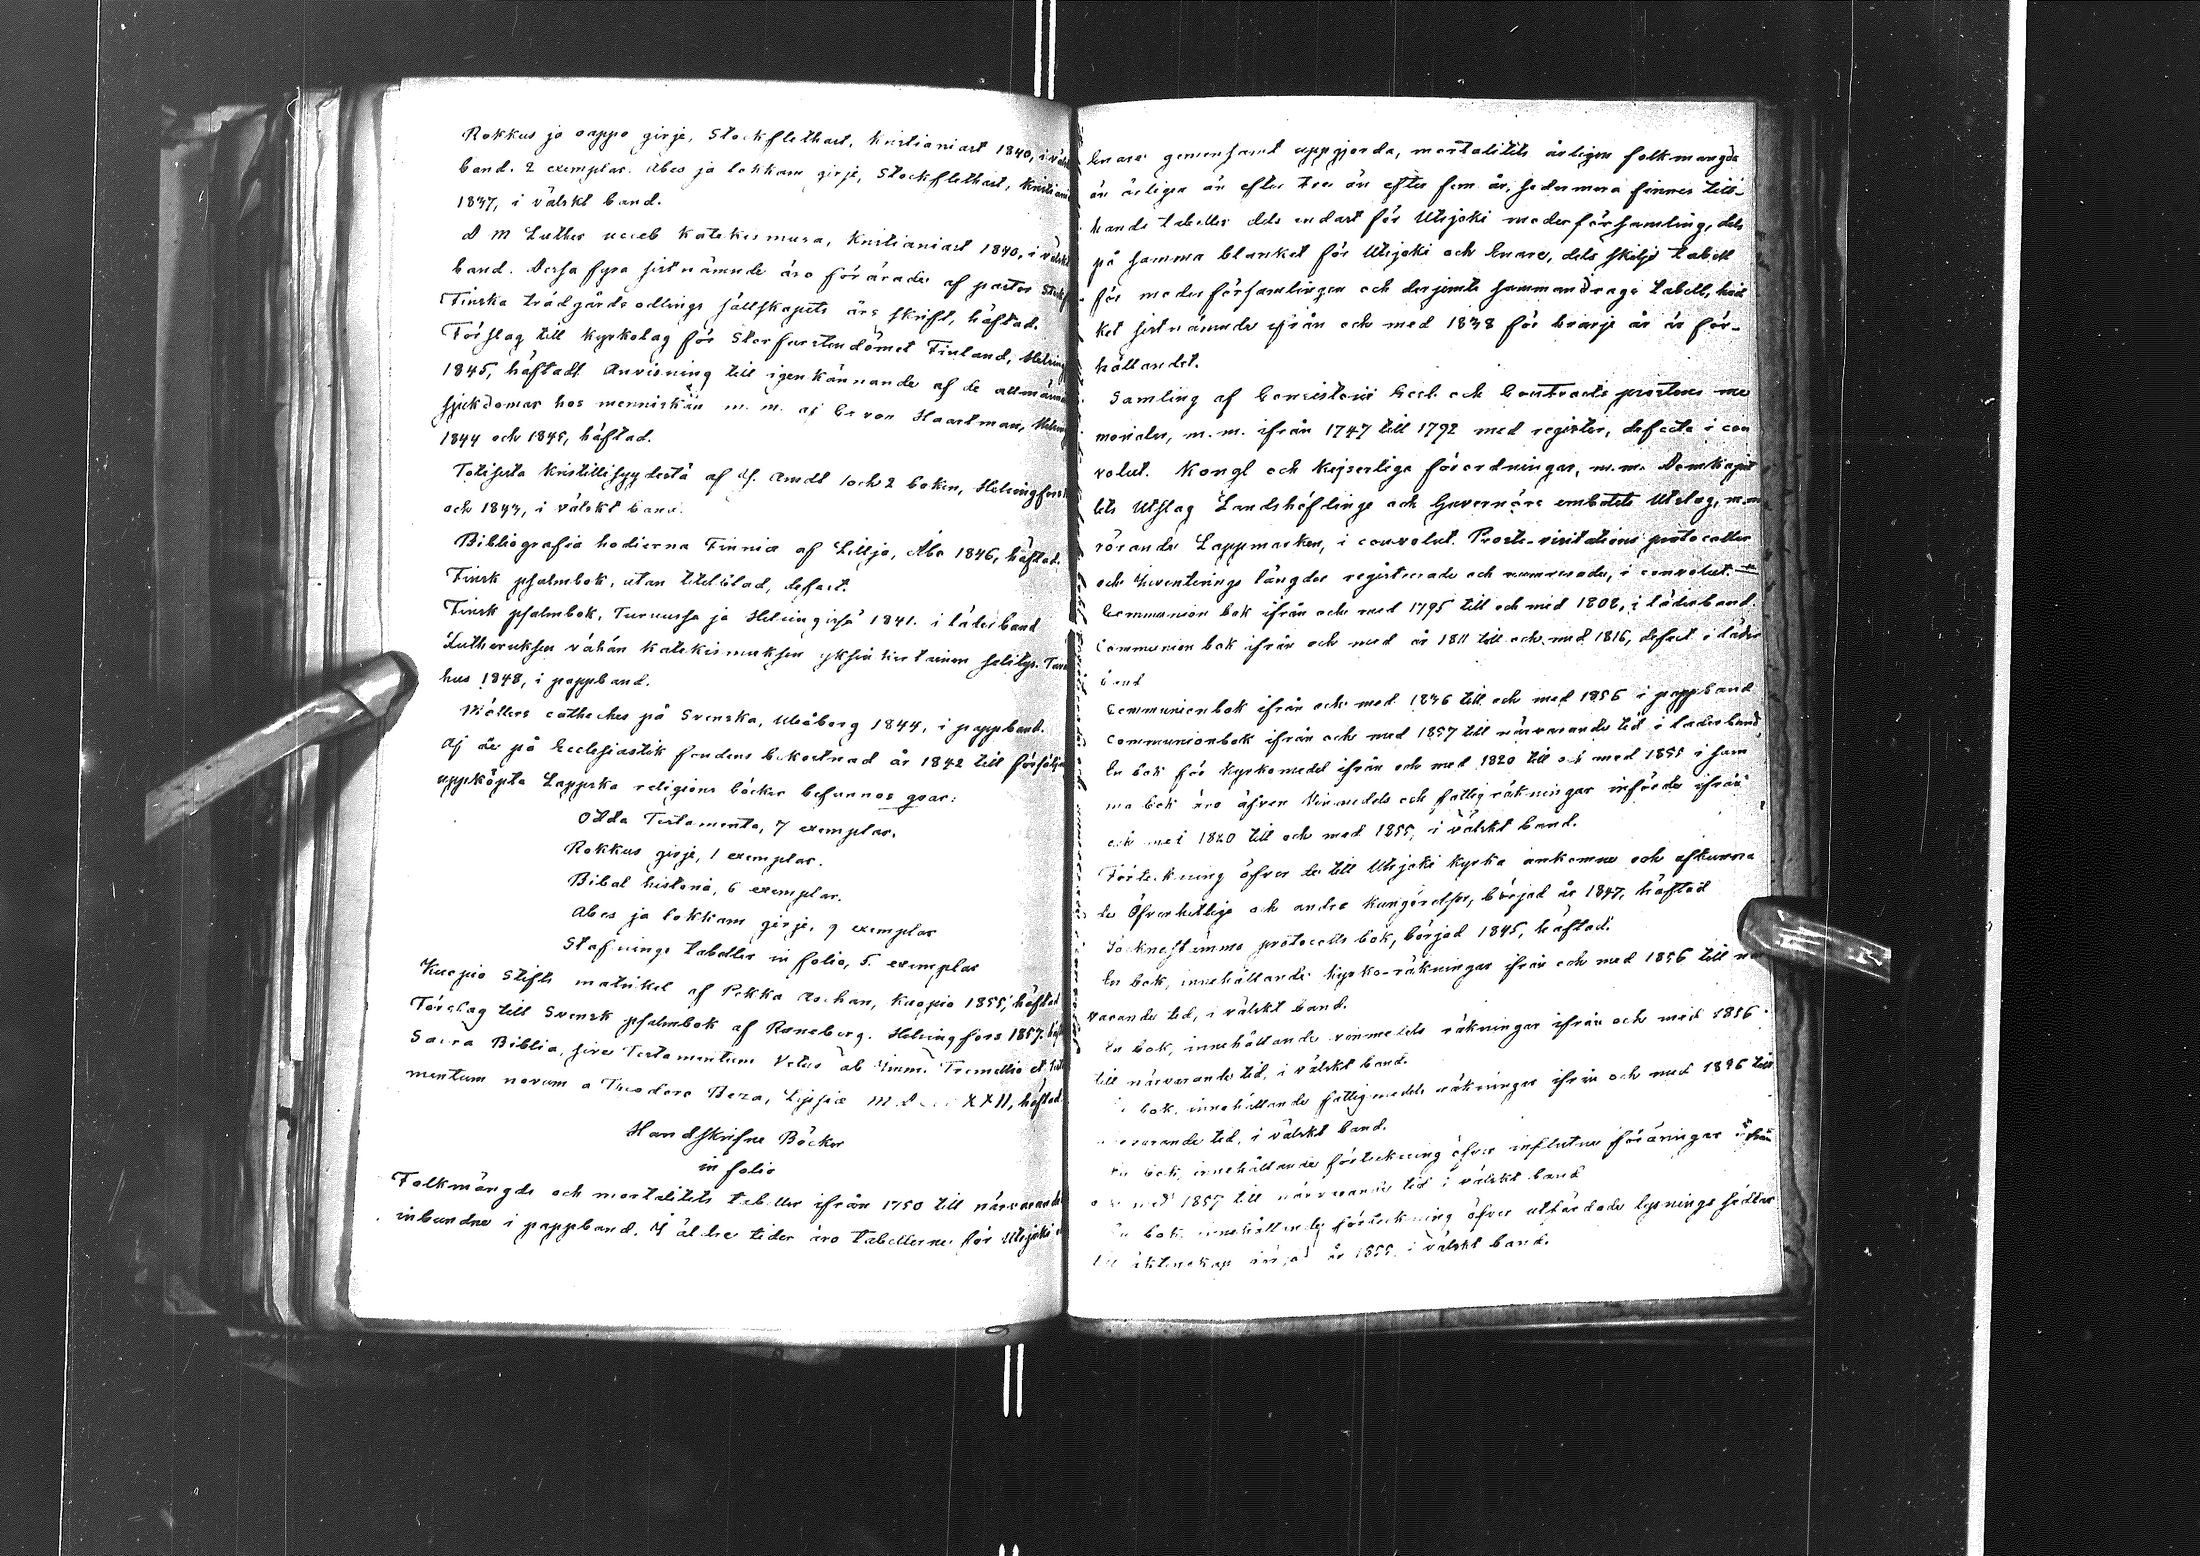 Rokkus ja oappo girje, Stockflethast, Kristianiast 1840, i
band. 2 exemplar. Abes ja lokkam girje, Stockflethast,
1837, i välskt band.
D M Luther ucceb katekismusa, Kristianiast 1840, i
band. Dessa fyra sistnämnde äro förärade af pastor
Finska trädgårds odlings sällskapets års skrift, häftad.
Förslag till Kyrkolag för Storfurstendömet Finland,
1845, häftadt Anvisning till igenkännande af de allmänna
sjukdomar hos menniskan m. m. af von Haartman,
1844 och 1845, häftad.
Totisesta Kristillisyydestä af Arndt 1 och 2 boken, Helsingfors
och 1843, i välskt band.
Bibliografia hodierna Finniæ af Lillja, Åbo 1846, häftad.
Finsk psalmbok, utan titelblad, defect.
Finsk psalmbok, Turussa ja Helsingissä 1841. i läderband
Lutheruksen vähän katekismuksen yksinkertainen selitys.
hus 1848, i pappband.
Möllers catheches på Svenska, Uleåborg 1844, i pappband.
Af de på Ecclesiastik fondens bekostnad år 1842 till
uppköpta Lappska religions böcker befunnos qvar:
Odda Testamenta, 7 exemplar.
Rokkus girje, 1 exemplar.
Bibal historia, 6 exemplar.
Abes ja lokkam girje, 9 exemplar
Stafnings tabeller in folio, 5 exemplar
Kuopio stifts matrikel af Pekka Aschan, Kuopio 1855, häftad
Förslag till Svensk psalmbok af Runeberg. Helsingfors 1857.
Sacra Biblia, sive Testamentum Vetus ab Imm. Tremellio et
mentum novum a Theodoro Beza, Lipsiæ häftad
Handskrifne Böcker
in folio
Folkmängds och mortalitets tabeller ifrån 1750 till närvarande
inbundne i pappband. I äldre tider äro tabellerne för Utsjoki
Enare gemensamt uppgjorda, mortalitets årligen folkmängds
än årligen än efter tre än efter fem år, sedermera finnes
hande tabeller dels endast för Utsjoki moderförsamling, dels
på samma blankett för Utsjoki och Enare, dels skilje tabell
för moderförsamlingen och derjemte sammandrags tabell,
ket sistnämnde ifrån och med 1838 för hvarje år är för-
hållandet.
Samling af Consistorii Eccl. och Contracts prostens me
morialer, m. m. ifrån 1747 till 1792 med register, defecta i con
volut. Kongl och Kejserliga förordningar, m. m. Domkapit
lets Utslag Landshöfdinge och Guvernörs embetets Utslag, m. m.
rörande Lappmarken, i convolut. Prosts-visitations protocoller
och Inventerings längder registrerade och numrerade, i convolut.
Communion bok ifrån och med 1795 till och med 1802, i läderband.
Communion bok ifrån och med år 1811 till och med 1816, defect i läder
band
Communionbok ifrån och med 1836 till och med 1856 i pappband
Communionbok ifrån och med 1857 till närvarande tid i läderband
En bok för Kyrkomedel ifrån och med 1820 till och med 1855 i sam
ma bok äro äfven Vinmedels och fattig räkningar införde ifrån
och med 1820 till och med 1855, i välskt band.
Förteckning öfver de till Utsjoki kyrka ankomne och afkunna
de Öfverhetliga och andra kungörelser, börjad år 1847, häftad
Socknestämmo protocolls bok, börjad 1845, häftad.
En bok, innehållande kyrko-räkningar ifrån och med 1856 till
varande tid, i välskt band.
En bok, innehållande vinmedels räkningar ifrån och med 1856
till närvarande tid, i välskt band.
bok, innehållande fattigmedels räkningar ifrån och med 1856 till
varande tid, i välskt band.
En bok, innehållande förteckning öfver influtne föräringar ifrån
med 1857 till närvarande tid i välskt band
En bok, innehållande förteckning öfver utfärdade lysnings sedlar
till äktenskap börjad år 1855, i välskt band.